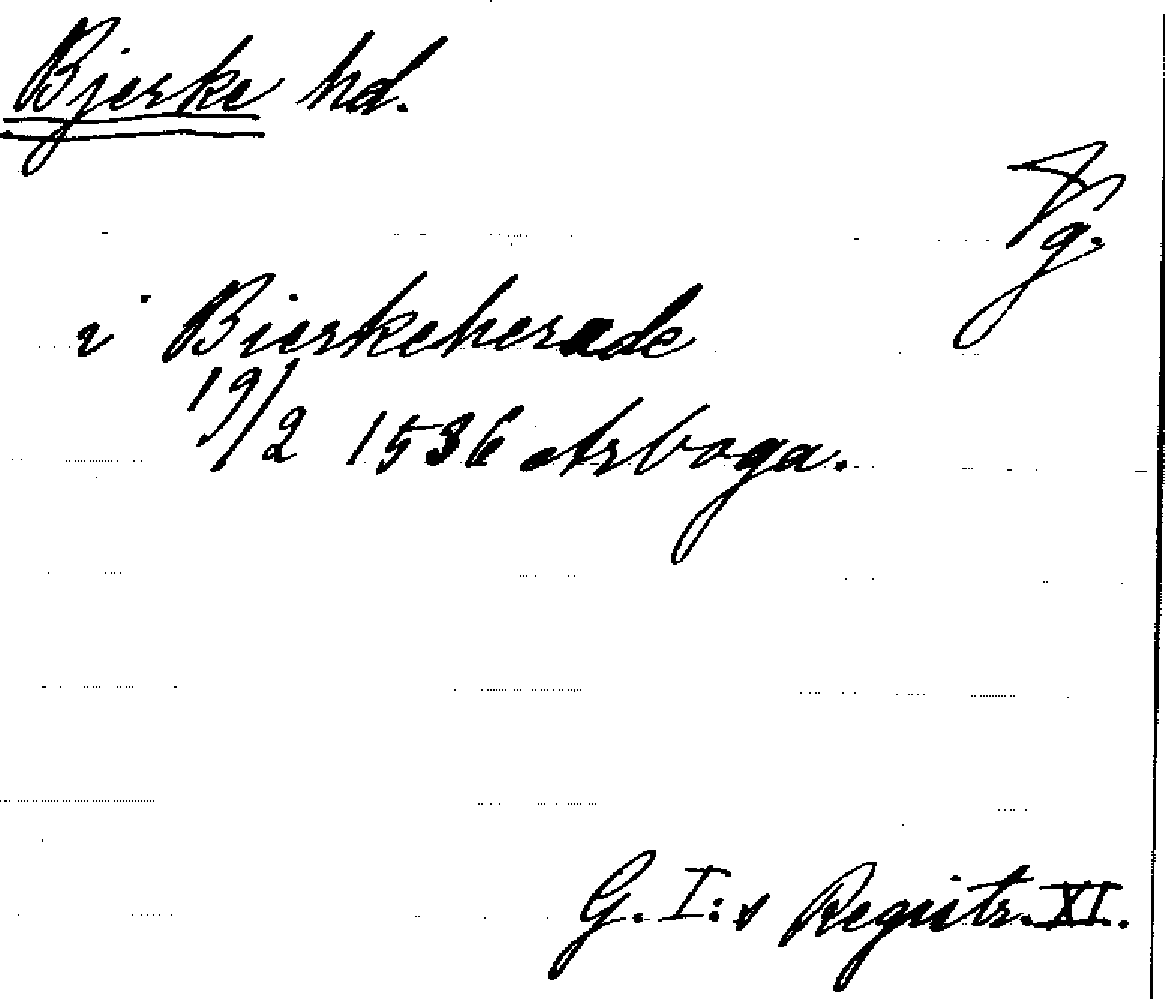 Bjerke hd.
Vg.
i Bierkeherade
19/2 1536 Arboga.
G. I:s Registr. XI.